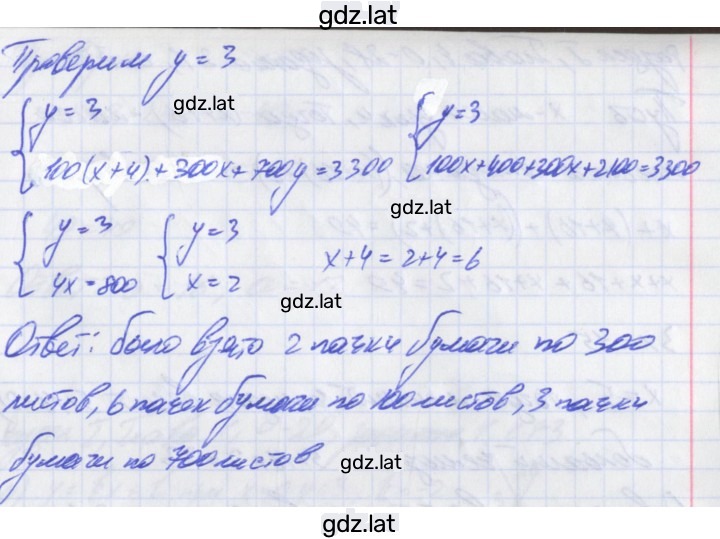 gdz.lat
Проверим y = 3
{ y = 3
100(x+4)+300x+700y=3300
gdz.lat
{ y=3
100x+400+300x+2100=3300
gdz.lat
{ y=3
4x=800
{ y=3
x=2
x+4=2+4=6
gdz.lat
Ответ: было взято 2 пачки бумаги по 300
листов, 6 пачек бумаги по 100 листов, 3 пачки
бумаги по 700 листов
gdz.lat
gdz.lat